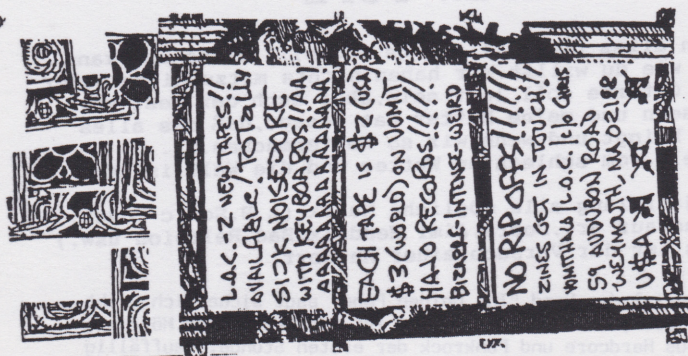 L.O.C.-2 NEW TAPES!!
AVAILABLE./TOTALLY
SICK NOISE CORE
WITH KEYBOARDS!!AA
AAAAAAAAAAAAAAA
EACH TAPE IS $2 (USA)
$3 (WORLD) ON VOMIT
HALO RECORDS.!!!!!
BIZARRE-INTENCE-WEIRD
NO RIP OFFS!!!!!!!
ZINES GET IN TOUCH!!
VOMITHALO/L.O.C./C/O CHRIS
59 AUDUBON ROAD
WEYMOUTH, MA 02188
USA